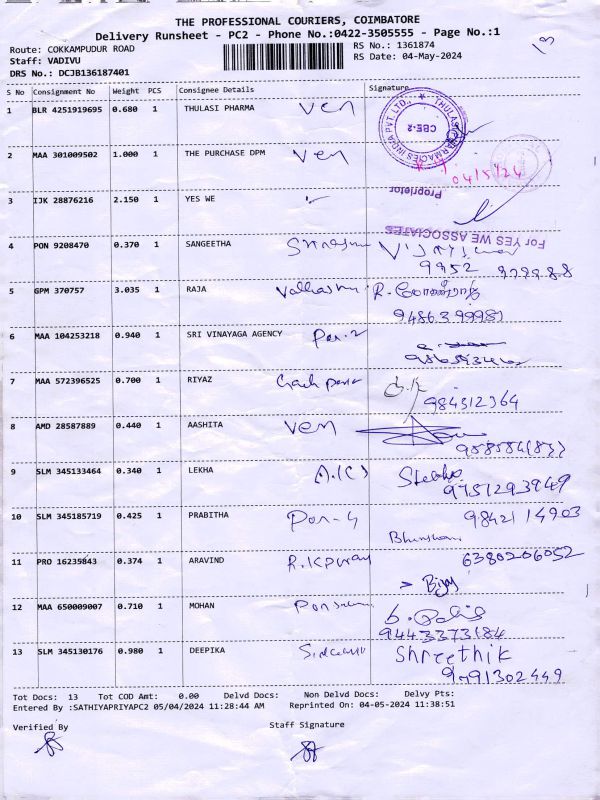 THE PROFESSIONAL COURIERS, COIMBATORE
Delivery Runsheet - PC2 - Phone No.:0422-3505555 - Page No.:1
Route: COKKAMPUDUR ROAD
RS No.: 1361874
Staff: VADIVU
RS Date: 04-May-2024
DRS No.: DCJB136187401
S No Consignment No Weight PCS Consignee Details Signature
1 BLR 4251919695 0.680 1 THULASI PHARMA Ven
THULASI PHARMACIES INDIA PVT. LTD., CBE-2
2 MAA 301009502 1.000 1 THE PURCHASE DPM Ven
04/5/24
3 IJK 28876216 2.150 1 YES WE
Proprietor
For YES WE ASSOCIATES
4 PON 9208470 0.370 1 SANGEETHA
9952
5 GPM 370757 3.035 1 RAJA R.
6 MAA 104253218 0.940 1 SRI VINAYAGA AGENCY Pon.2
7 MAA 572396525 0.700 1 RIYAZ
984312364
8 AMD 28587889 0.440 1 AASHITA Ven
9 SLM 345133464 0.340 1 LEKHA
9751293949
10 SLM 345185719 0.425 1 PRABITHA Pon-4 9842114903
11 PRO 16235843 0.374 1 ARAVIND 6380206052
Bijoy
12 MAA 650009007 0.710 1 MOHAN
9443373184
13 SLM 345130176 0.980 1 DEEPIKA Shreethik
9791302449
Tot Docs: 13 Tot COD Amt: 0.00 Delvd Docs: Non Delvd Docs: Delvy Pts:
Entered By :SATHIYAPRIYAPC2 05/04/2024 11:28:44 AM Reprinted On: 04-05-2024 11:38:51
Verified By Staff Signature